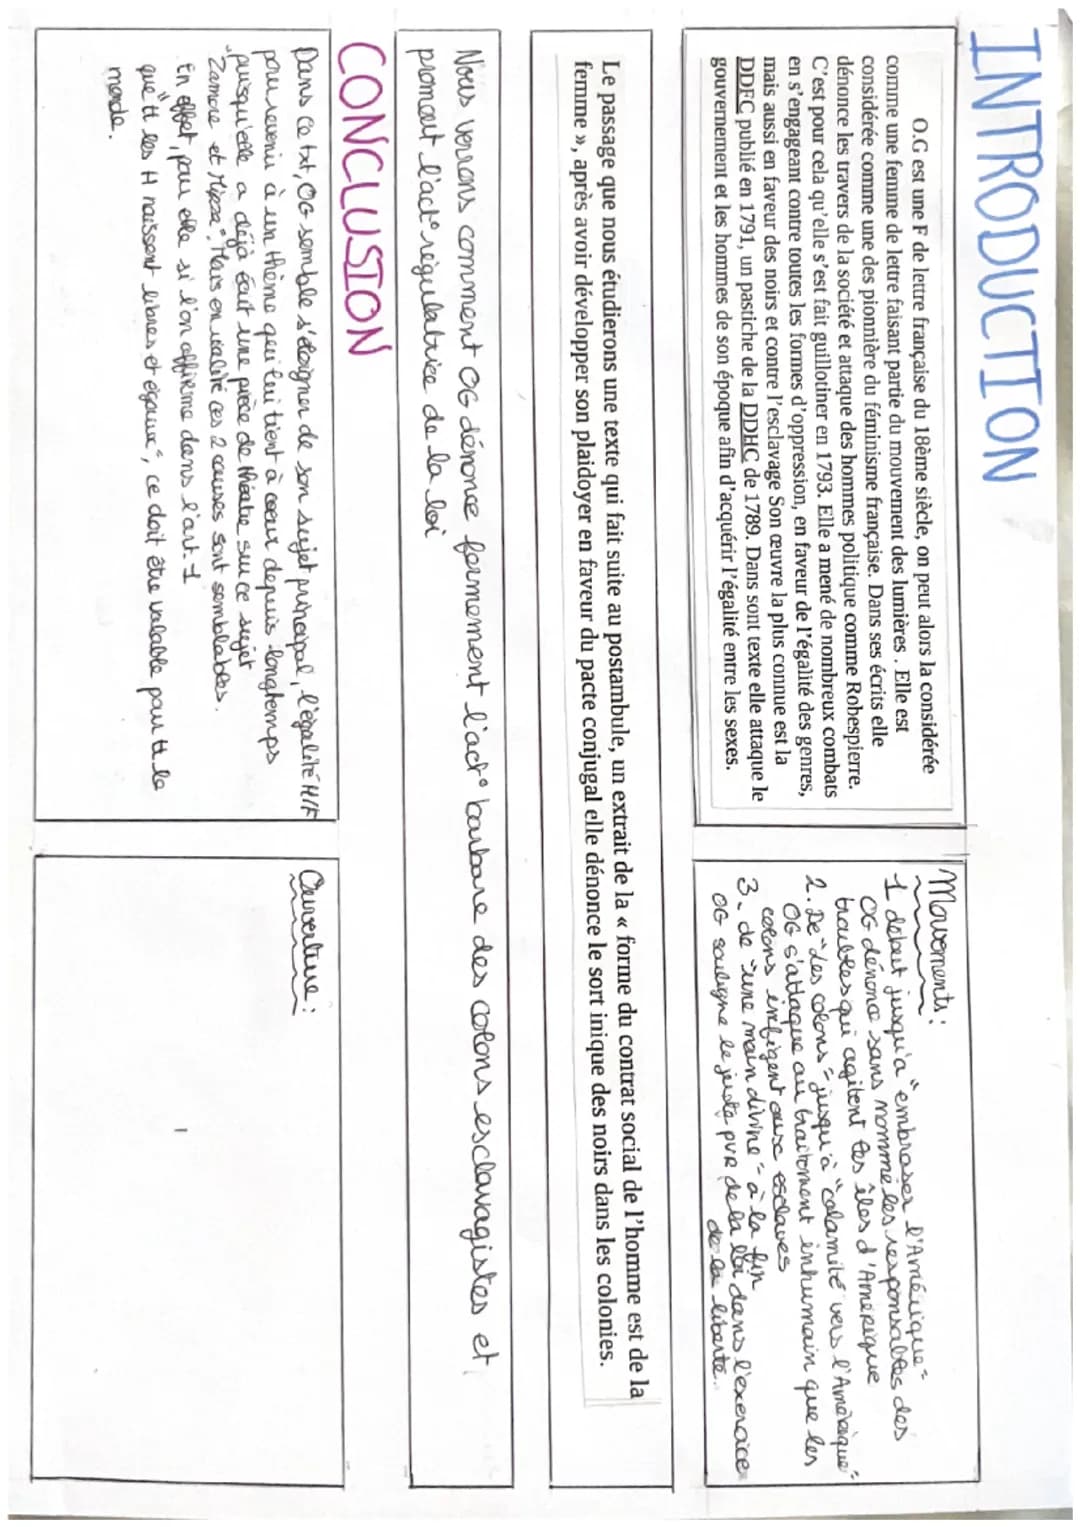 INTRODUCTION
O.G est une F de lettre française du 18ème siècle, on peut alors la considérée
comme une femme de lettre faisant partie du mouvement des lumières . Elle est
considérée comme une des pionnière du féminisme française. Dans ses écrits elle
dénonce les travers de la société et attaque des hommes politique comme Robespierre.
C'est pour cela qu'elle s'est fait guillotiner en 1793. Elle a mené de nombreux combats
en s'engageant contre toutes les formes d'oppression, en faveur de l'égalité des genres,
mais aussi en faveur des noirs et contre l'esclavage Son œuvre la plus connue est la
DDFC publié en 1791, un pastiche de la DDHC de 1789. Dans sont texte elle attaque le
gouvernement et les hommes de son époque afin d'acquérir l'égalité entre les sexes.
Mouvements :
1 début jusqu'a "embraser l'Amérique"
OG dénonce sans nommé les responsables des
troubles qui agitent les îles d'Amérique
2. De "des colons" jusqu'à "calamité vers l'Amérique"
OG s'attaque au traitement inhumain que les
colons infligent aux esclaves
3- de "une main divine" à la fin
OG souligne le juste pvr de la loi dans l'exercice
de la liberté.
Le passage que nous étudierons une texte qui fait suite au postambule, un extrait de la « forme du contrat social de l'homme est de la
femme », après avoir développer son plaidoyer en faveur du pacte conjugal elle dénonce le sort inique des noirs dans les colonies.
Nous verrons comment OG dénonce fermement l'act° barbare des colons esclavagistes et
promout l'act° régulatrice de la loi
CONCLUSION
Dans ce txt, OG semble s'éloigner de son sujet principal, l'égalité H/F
pour revenir à un thème qui lui tient à cœur depuis longtemps
puisqu'elle a déjà écrit une pièce de théatre sur ce sujet
"Zamore et Mirza". Mais en réalité ces 2 causes sont semblables.
En effet, pour elle si l'on affirme dans l'art 1
que "tt les H naissent libres et égaux", ce doit être valable pour tt le
monde.
Ouverture :